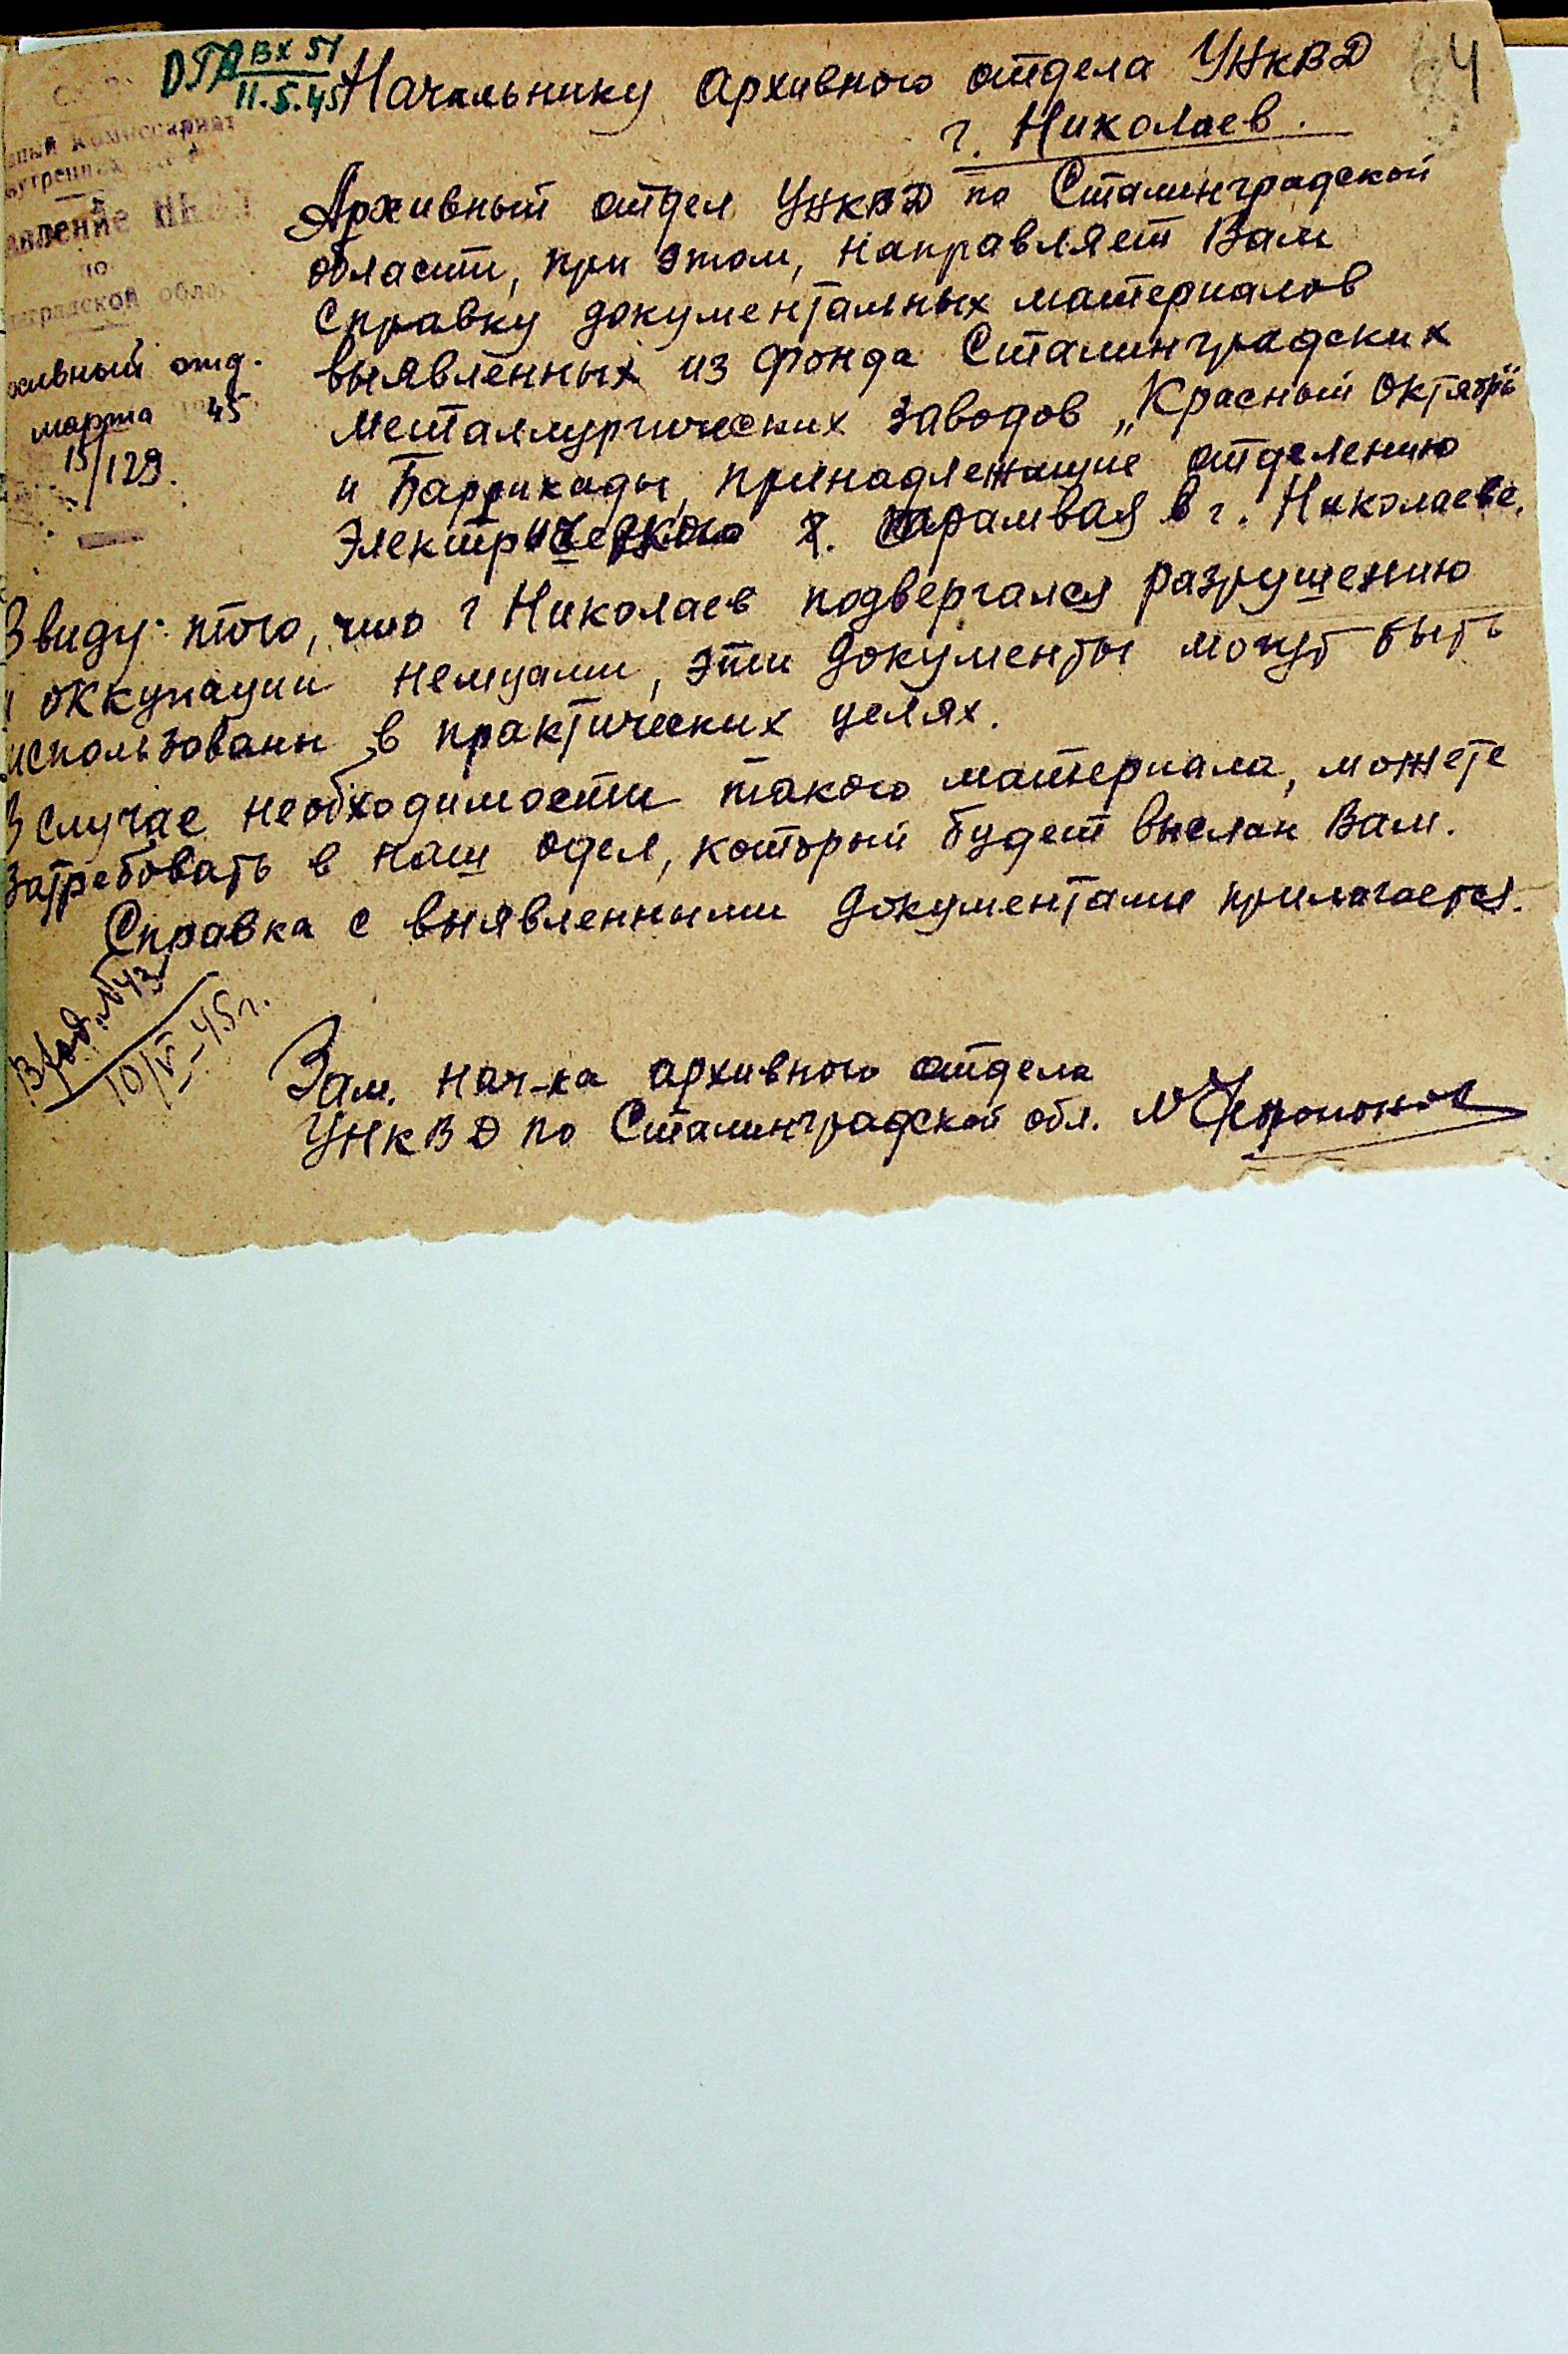 ОГА вх 51
11.5.45
84
Начальнику архивного отдела УНКВД
г. Николаев.
ный Комиссариат
утренних
авление НКВД
по
градской обла
хивный отд.
марта 45
15/129.
Архивный отдел УНКВД по Сталинградской
области, при этом, направляет Вам
справку документальных материалов
выявленных из фонда Сталинградских
металлургических заводов „Красный Октябрь"
и Баррикады, принадлежащие отделению
Электрического трамвая в г. Николаеве.
Ввиду того, что г Николаев подвергался разрушению
и оккупации немцами, эти документы могут быть
использованы в практических целях.
В случае необходимости такого материала, можете
затребовать в наш одел, который будет выслан Вам.
Справка с выявленными документами прилагается.
Вход. №43
10/V-45г.
Зам. нач-ка архивного отдела
УНКВД по Сталинградской обл.